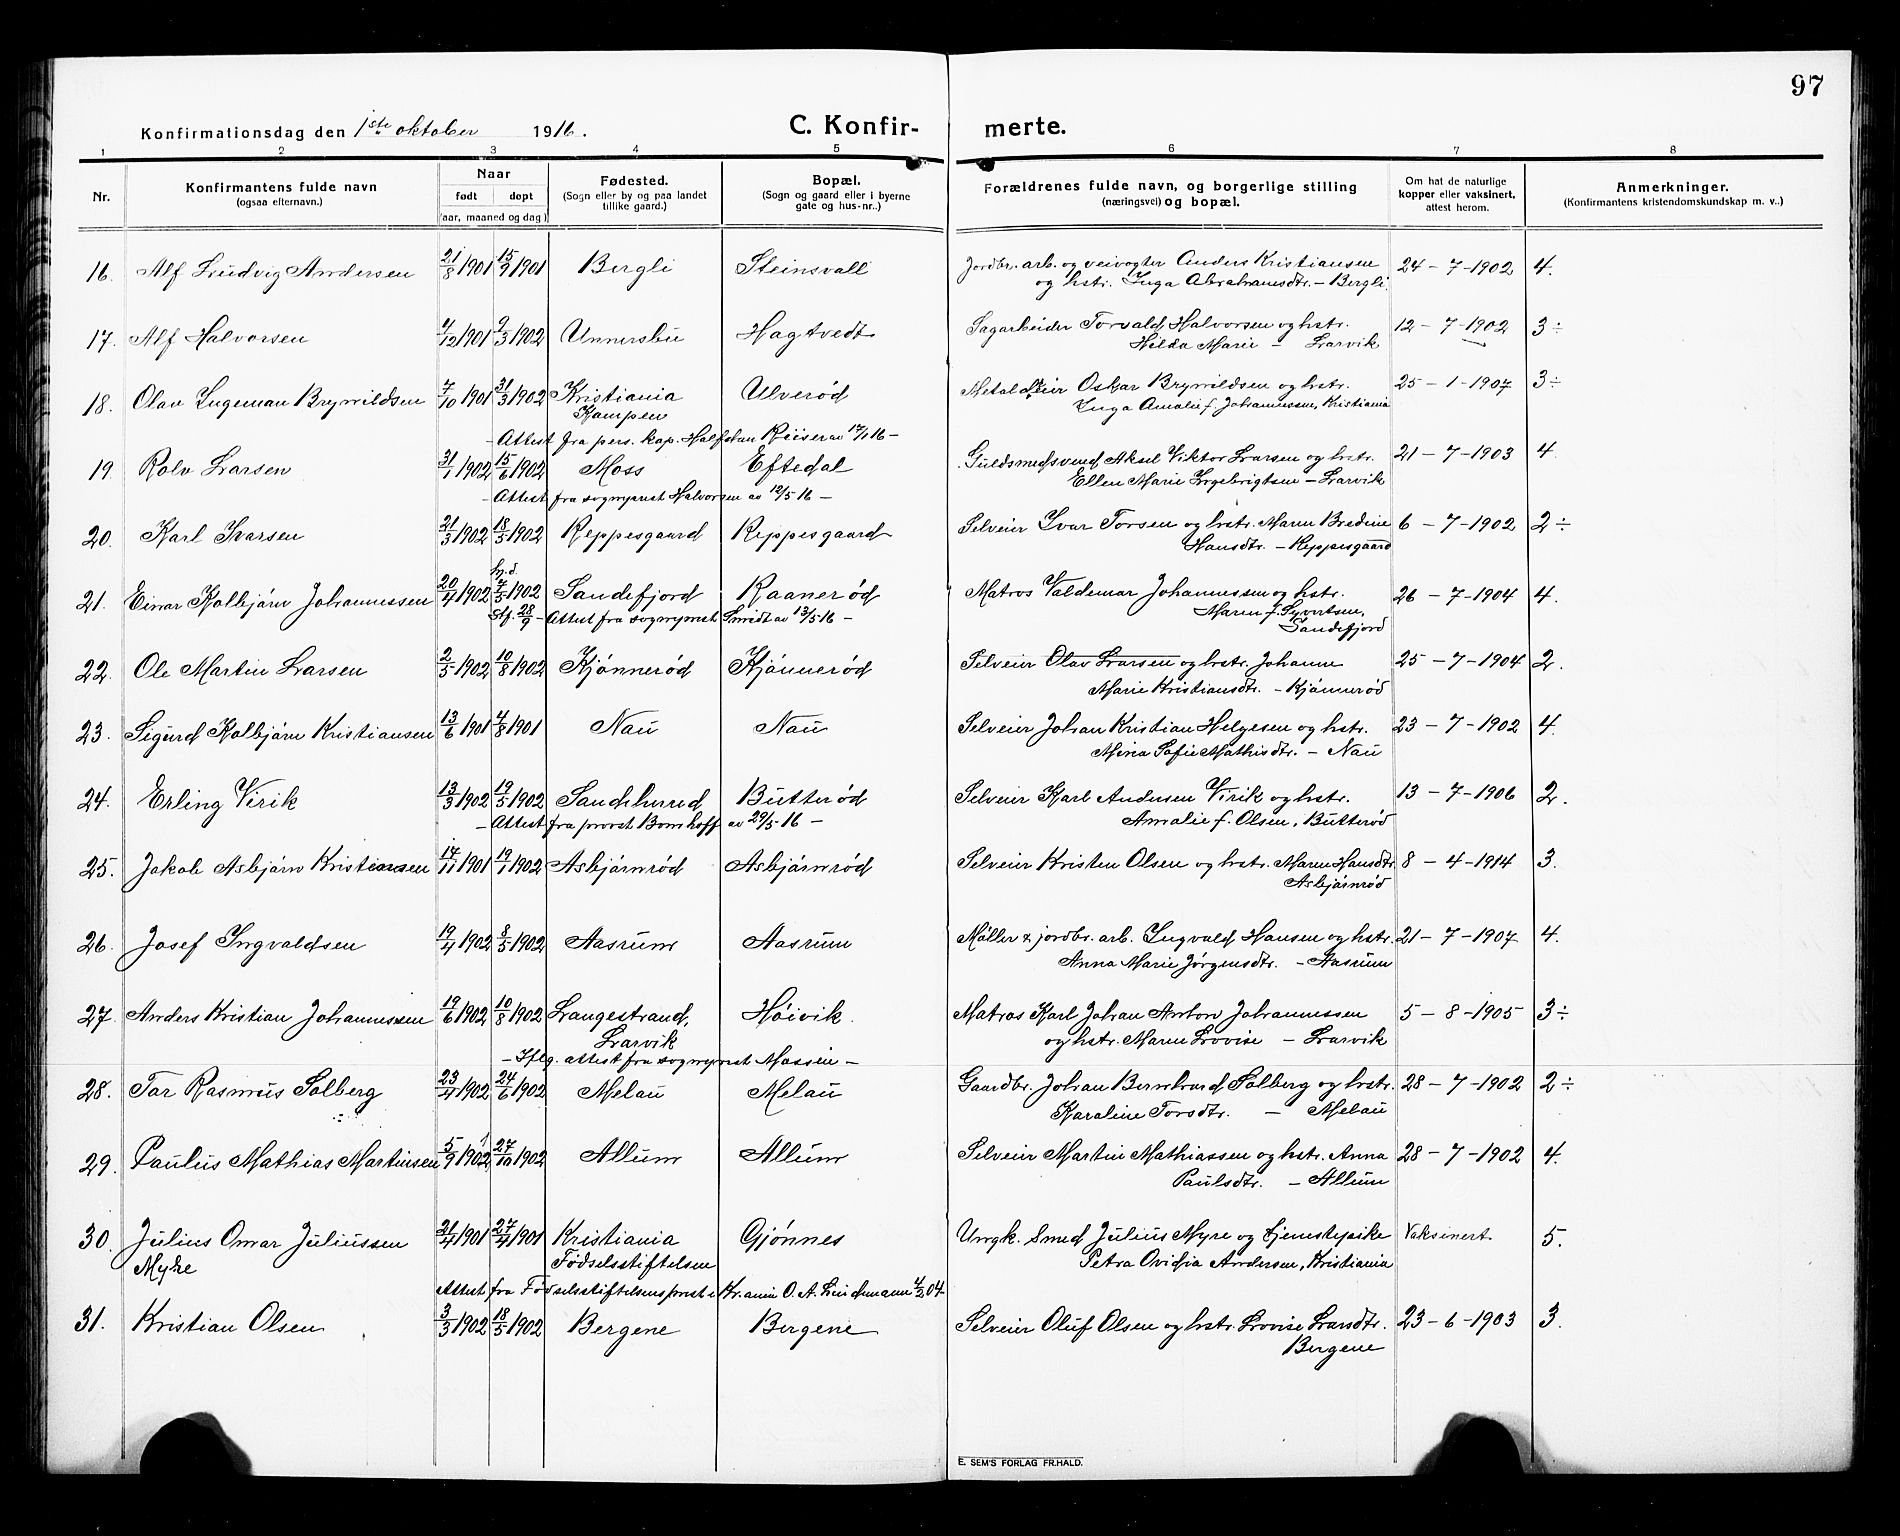 97
Konfirmationsdag den 1ste oktober 1916.
C. Konfir-
merte.
1 2 3 4 5 6 7 8
Nr.
Konfirmantens fulde navn
(ogsaa efternavn.)
Naar
født døpt
(aar, maaned og dag)
Fødested.
(Sogn eller by og paa landet
tillike gaard.)
Bopæl.
(Sogn og gaard eller i byerne
gate og hus-nr..)
Forældrenes fulde navn, og borgerlige stilling
(næringsvei) og bopæl.
Om hat de naturlige
kopper eller vaksinert,
attest herom.
Anmerkninger.
(Konfirmantens kristendomskundskap m. v..)
16. Alf Ludvig Andersen 21/8 1901 15/9 1901 Bergli Steinsvall Jordbr. arb. og veivogter Anders Kristiansen 24-7-1902 4.
og hstr. Inga Abrahamsdtr. - Bergli.
17. Alf Halvorsen 4/12 1901 9/3 1902 Unnersbu Hagtvedt Sagarbeider Torvald Halvorsen og hstr. 12-7-1902 3÷
Hilda Marie - Larvik
18. Olav Ingeman Brynildsen 7/10 1901 31/3 1902 Kristiania Ulverød Metaldreier Oskar Brynildsen og hstr. 25-1-1907 3÷
Kampen Inga Amalie f. Johannessen, Kristiania
- Attest fra pers. kap. Halfdan Riiser av 17/1 16 -
19. Rolv Larsen 31/1 1902 15/6 1902 Moss Eftedal Guldsmedsvend Aksel Viktor Larsen og hstr. 21-7-1903 4.
Ellen Marie Ingebrigtsen - Larvik
- Attest fra sogneprest Halvorsen av 12/5 16 -
20. Karl Ivarsen 21/3 1902 18/5 1902 Reppesgaard Reppesgaard Selveier Ivar Torsen og hstr. Maren Bredine 6-7-1902 2÷
Hansdtr. - Reppesgaard
hj. d.
21. Einar Kolbjørn Johannessen 20/4 1902 7/5 1902 Sandefjord Raanerød Matros Valdemar Johannessen og hstr. 26-7-1904 4.
Stf. 28/9 - Attest fra sogneprest Smidt av 13/5 16 - Maren f. Syvertsen,
Sandefjord
22. Ole Martin Larsen 2/5 1902 10/8 1902 Kjønnerød Kjønnerød Selveier Olav Larsen og hstr. Johanne 25-7-1904 2.
Marie Kristiansdtr. - Kjønnerød
23. Sigurd Kolbjørn Kristiansen 13/6 1901 4/8 1901 Nau Nau Selveier Johan Kristian Helgesen og hstr. 23-7-1902 4.
Mina Sofie Mathisdtr. - Nau
24. Erling Virik 13/3 1902 19/5 1902 Sandeherred Butterød Selveier Karl Andersen Virik og hstr. 13-7-1906 2.
- Attest fra prost Bomhoff av 29/5-16 - Amalie f. Olsen, Butterød
25. Jakob Asbjørn Kristiansen 14/11 1901 19/1 1902 Asbjørnrød Asbjørnrød Selveier Kristen Olsen og hstr. Maren Hansdtr. 8-4-1914 3.
Asbjørnrød
26. Josef Ingvaldsen 19/4 1902 8/5 1902 Aasrum Aasrum Møller & jordbr. arb. Ingvald Hansen og hstr. 21-7-1907 4.
Anna Marie Jørgensdtr. - Aasrum
27. Anders Kristian Johannessen 19/6 1902 10/8 1902 Langestrand, Høivik. Matros Karl Johan Anton Johannessen 5-8-1905 3÷
Larvik og hstr. Maren Lovise - Larvik
- Iflg. attest fra sogneprest Massin -
28. Tor Rasmus Solberg 23/4 1902 24/6 1902 Melau Melau Gaardbr. Johan Bernhard Solberg og hstr. 28-7-1902 2÷
Karoline Torsdtr. - Melau
29. Paulus Mathias Martinsen 5/9 1902 1 27/10 1902 Allum Allum Selveier Martin Mathiassen og hstr. Anna 28-7-1902 4.
Paulsdtr. - Allum
30. Julius Omar Juliussen 21/4 1901 27/4 1901 Kristiania Gjønnes Ungk. Smed Julius Myre og tjenestepike Vaksinert 5.
Myhe Fødselsstiftelsen Petra Ovidia Andersen, Kristiania
Attest fra Fødselsstiftelsens prest i Kr.ania O. A. Lindemann 4/2 04
31. Kristian Olsen 3/3 1902 18/5 1902 Bergene Bergene Selveier Oluf Olsen og hstr. Lovise Larsdtr. 23-6-1903 3.
Bergene
E. SEM'S FORLAG FR.HALD.